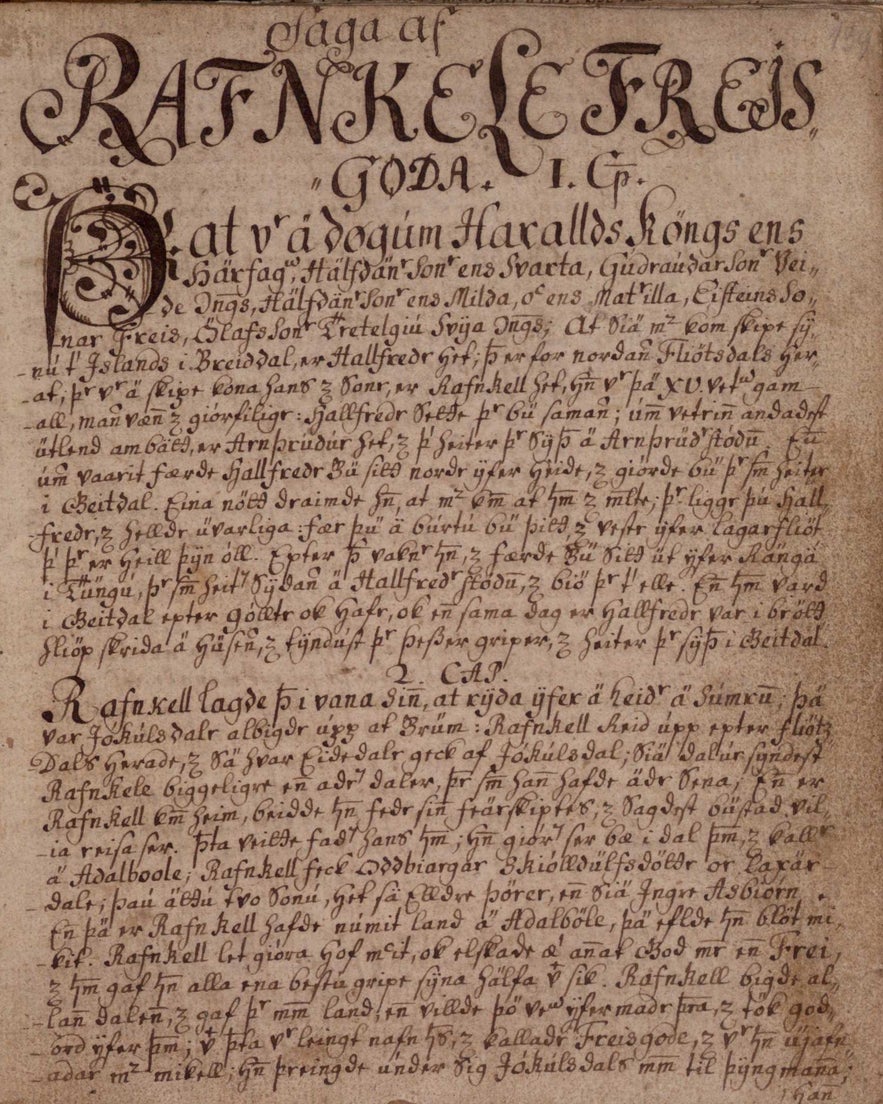 Saga af
RAFNKELE FREIS„
„GODA. I. Cp.
Þat vr ä dögum Harallds köngs ens
Härfagra, Hälfdänr Sonr ens Svarta, Gudraudar Sonr Vei„
de Jngs, Hälfdänr Sonr ens Milda, oc ens Matrilla, Eisteins So„
nar Freis, Olafs Sonr Tretelgiu Svÿa Jngs; At Siä mr kom skipe sÿ„
nu t' Jslands i Breiddal, er Hallfredr het, þ er for nordan Fliötsdals Her„
at; þr vr ä skipe kona hans ꝛ Sonr, er Rafnkell het, hn vr þä XV. vetra gam„
all, mañ væñ ꝛ giörfiligr: Hallfredr Sette þr bü samañ; üm vetriñ andadest
ütlend ambätt, er Arnþrüdur het, ꝛ þ' heiter þr Sÿþ ä Arnþrüdrstödum. Eñ
üm vaarit færde Hallfredr Bü sitt nordr ÿfer Heide, ꝛ giörde bü þr sm heiter
i Geitdal. Eina nött draimde hn, at mr km at hm ꝛ mlte; þr liggr þu Hall„
fredr, ꝛ helldr üvarliga: fær þu ä burtu bü þitt, ꝛ vestr ÿfer Lagarfliöt
þ' þr er Heill þÿn öll. Epter þ vaknr hn, ꝛ færde Bü Sitt üt ÿfer Rängä
i Tüngu, þr sm heiter Sÿdañ ä Hallfredrstödum, ꝛ biö þr t' elle. Eñ hm vard
i Geitdal epter göltr ok Hafr, ok eñ sama dag er Hallfredr var i brött
hliöp skrida ä Hüseñ, ꝛ tÿndust þr þesser griper, ꝛ heiter þr sÿþ i Geitdal.
2. CAP.
Rafnkell lagde þ i vana siñ, at rÿda ÿfer ä heidr ä Sumrum; þä
var Jökülsdalr albigdr üpp at Brüm: Rafnkell Reid üpp epter Fliöts
Dals Herade, ꝛ Sä hvar Eidedalr geck af Jökülsdal; Siä dalur sÿndest
Rafnkele biggeligre eñ adrer daler, þr sm hañ hafde ädr Sena; Eñ er
Rafnkell km heim, beidde hn fedr siñ feärskiptes, ꝛ Sagdest büstad vil„
ia reisa ser. Þta veitte fader hans hm; hn giörer ser bæ i dal þm, ꝛ kallr
ä Adalboole; Rafnkell feck Oddbiargar Skiölldülfsdöttr or Laxär
dale; þau ättu tvo Sonu, Het sä Elldre Þörer, eñ Siä Jngre Asbiörn.
Eñ þä er Rafnkell hafde numit land ä Adalböle, þä eflde hn blöt mi„
kit. Rafnkell let giöra Hof mcit, ok elskade ei añat God mr en Frei,
ꝛ hm gaf hn alla ena bestu gripe sÿna hälfa v sik. Rafnkell bigde al„
lañ daleñ, ꝛ gaf þr mm land, eñ villde þö vera ÿfermadr þra, ꝛ tök god„
ord ÿfer þm; v þta vr leingt nafn hs, ꝛ kalladr Freisgode, ꝛ vr hn üjafn
adar mr mikell; hn þreingde under Sig Jökülsdals mm til þÿngmaña;
Hañ